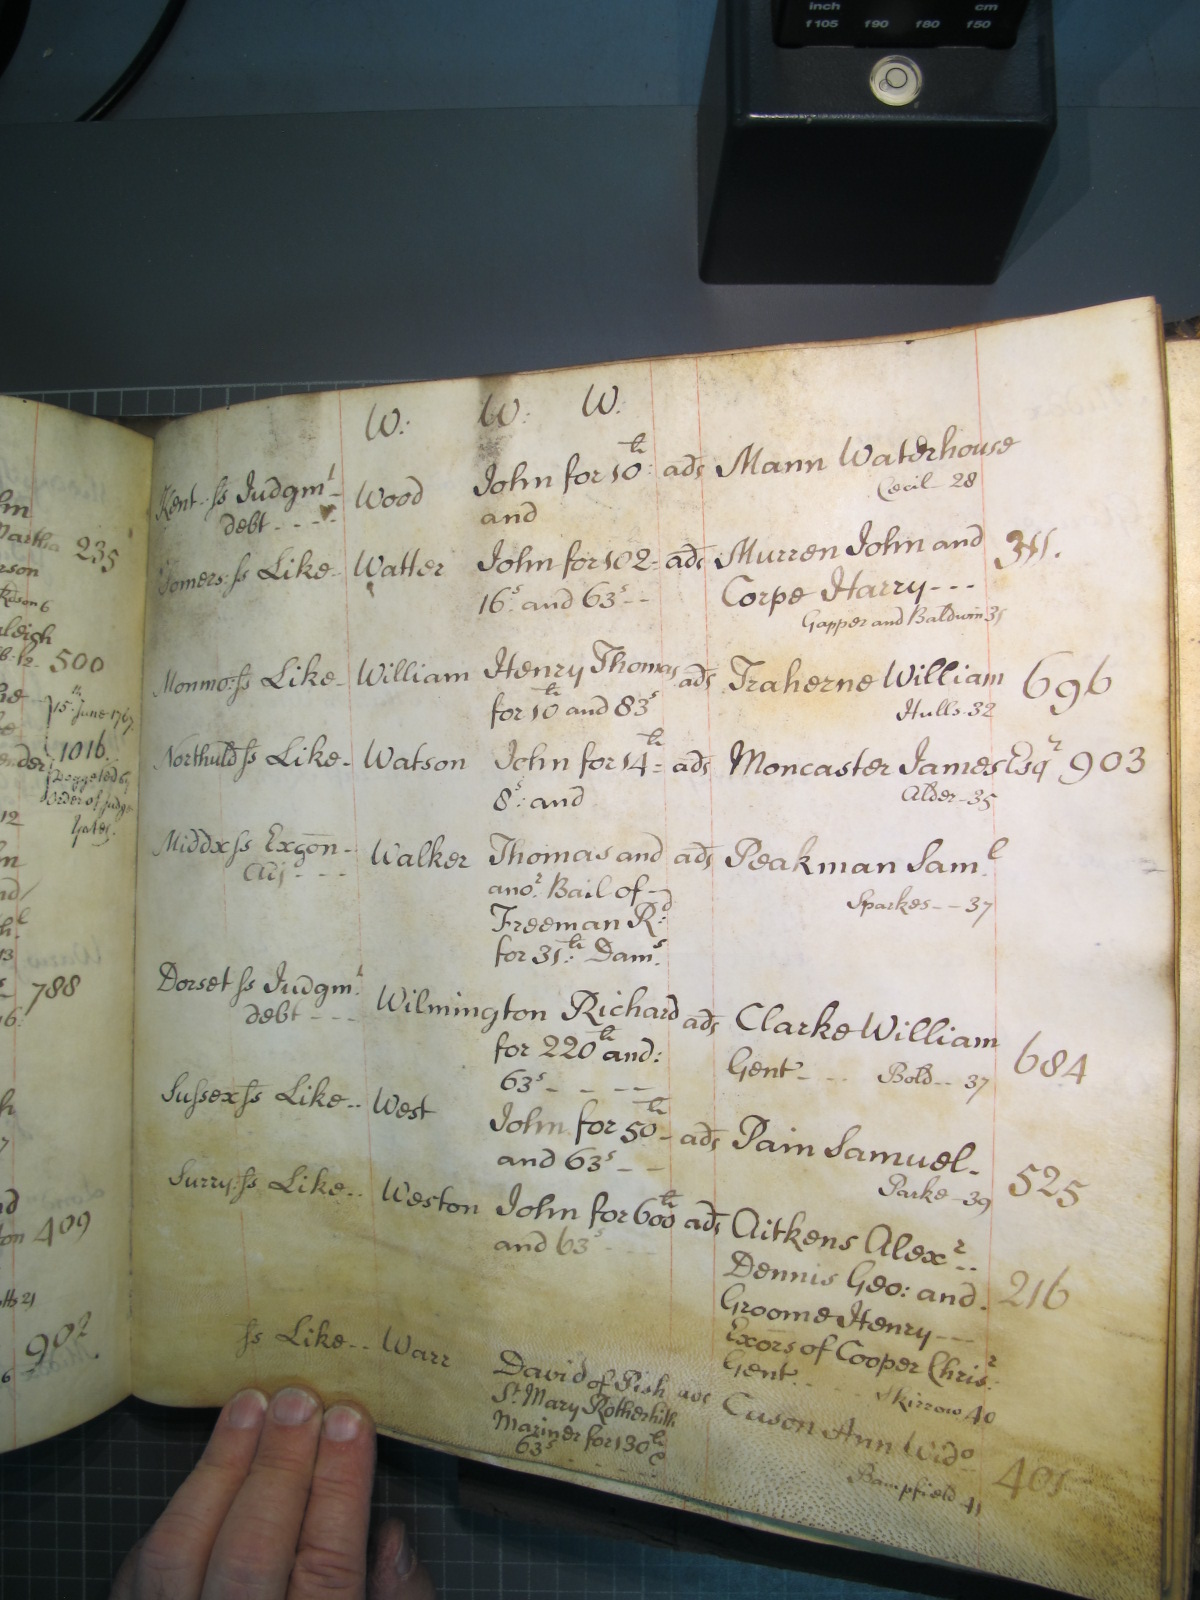 inch cm
f105 f90 f80 f50
W: W: W.
Kent ss Judgmt Wood John for 10li: ads Mann Waterhouse
debt - - - - and Cecil - 28
Somers: ss Like - Watter John for 102 - ads Murren John and 351.
16s: and 63s - - Corpe Harry - - -
Gapper and Baldwin 31
Monmo: ss Like - William Henry Thomas ads Traherne William 696
for 10li and 83s Hulls - 32
Northuld ss Like - Watson John for 14li - ads Moncaster James Esqr 903
8s: and Alder - 35
Middx ss Exgon - Walker Thomas and ads Peakman Saml
anor Bail of - Sparkes - - 37
Freeman Rd:
for 31li: Dams.
Dorset ss Judgmt Wilmington Richard ads Clarke William 684
debt - - - for 220li and: Gent - - - Bold - - 37
63s - - - -
Sussex ss Like - - West John for 50li - ads Pain Samuel - 525
and 63s - - Parke - 39
Surry: ss Like - - Weston John for 600li ads Aitkens Alexr - -
and 63s - - - Dennis Geo: and - 216
Groome Henry - - -
Exors of Cooper Chrisr:
Gent - - - Skirrow 40
ss Like - - Warr David of Pish ads Cuson Ann Wido
St. Mary Rotherhith 401
Mariner for 130li Bampfield 41
63s - - - - -
235
500
15th June 1767
1016
order of Judge
Yates.
788
409
21
902